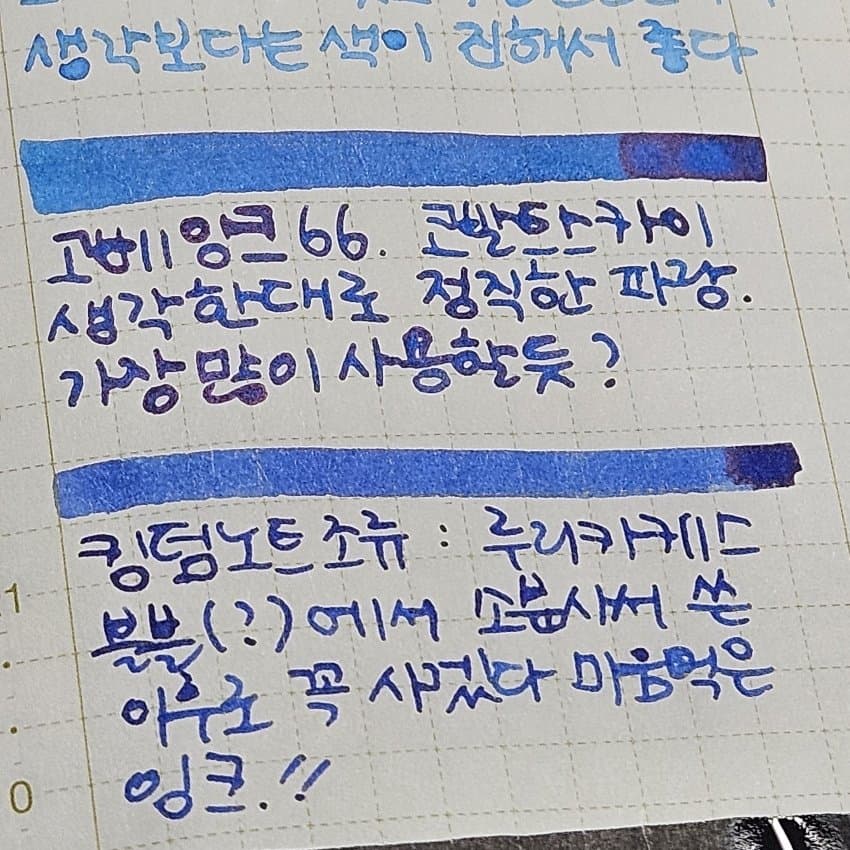 생각보다는 색이 진해서 좋다
고베잉크 66. 코발트스카이
생각한대로 정직한 파랑.
가장 많이 사용한듯?
킹덤노트 조류 : 루리카케스
블불(?)에서 소분사서 쓴
이후로 꼭 사겠다 마음먹은
잉크.!!
1
0